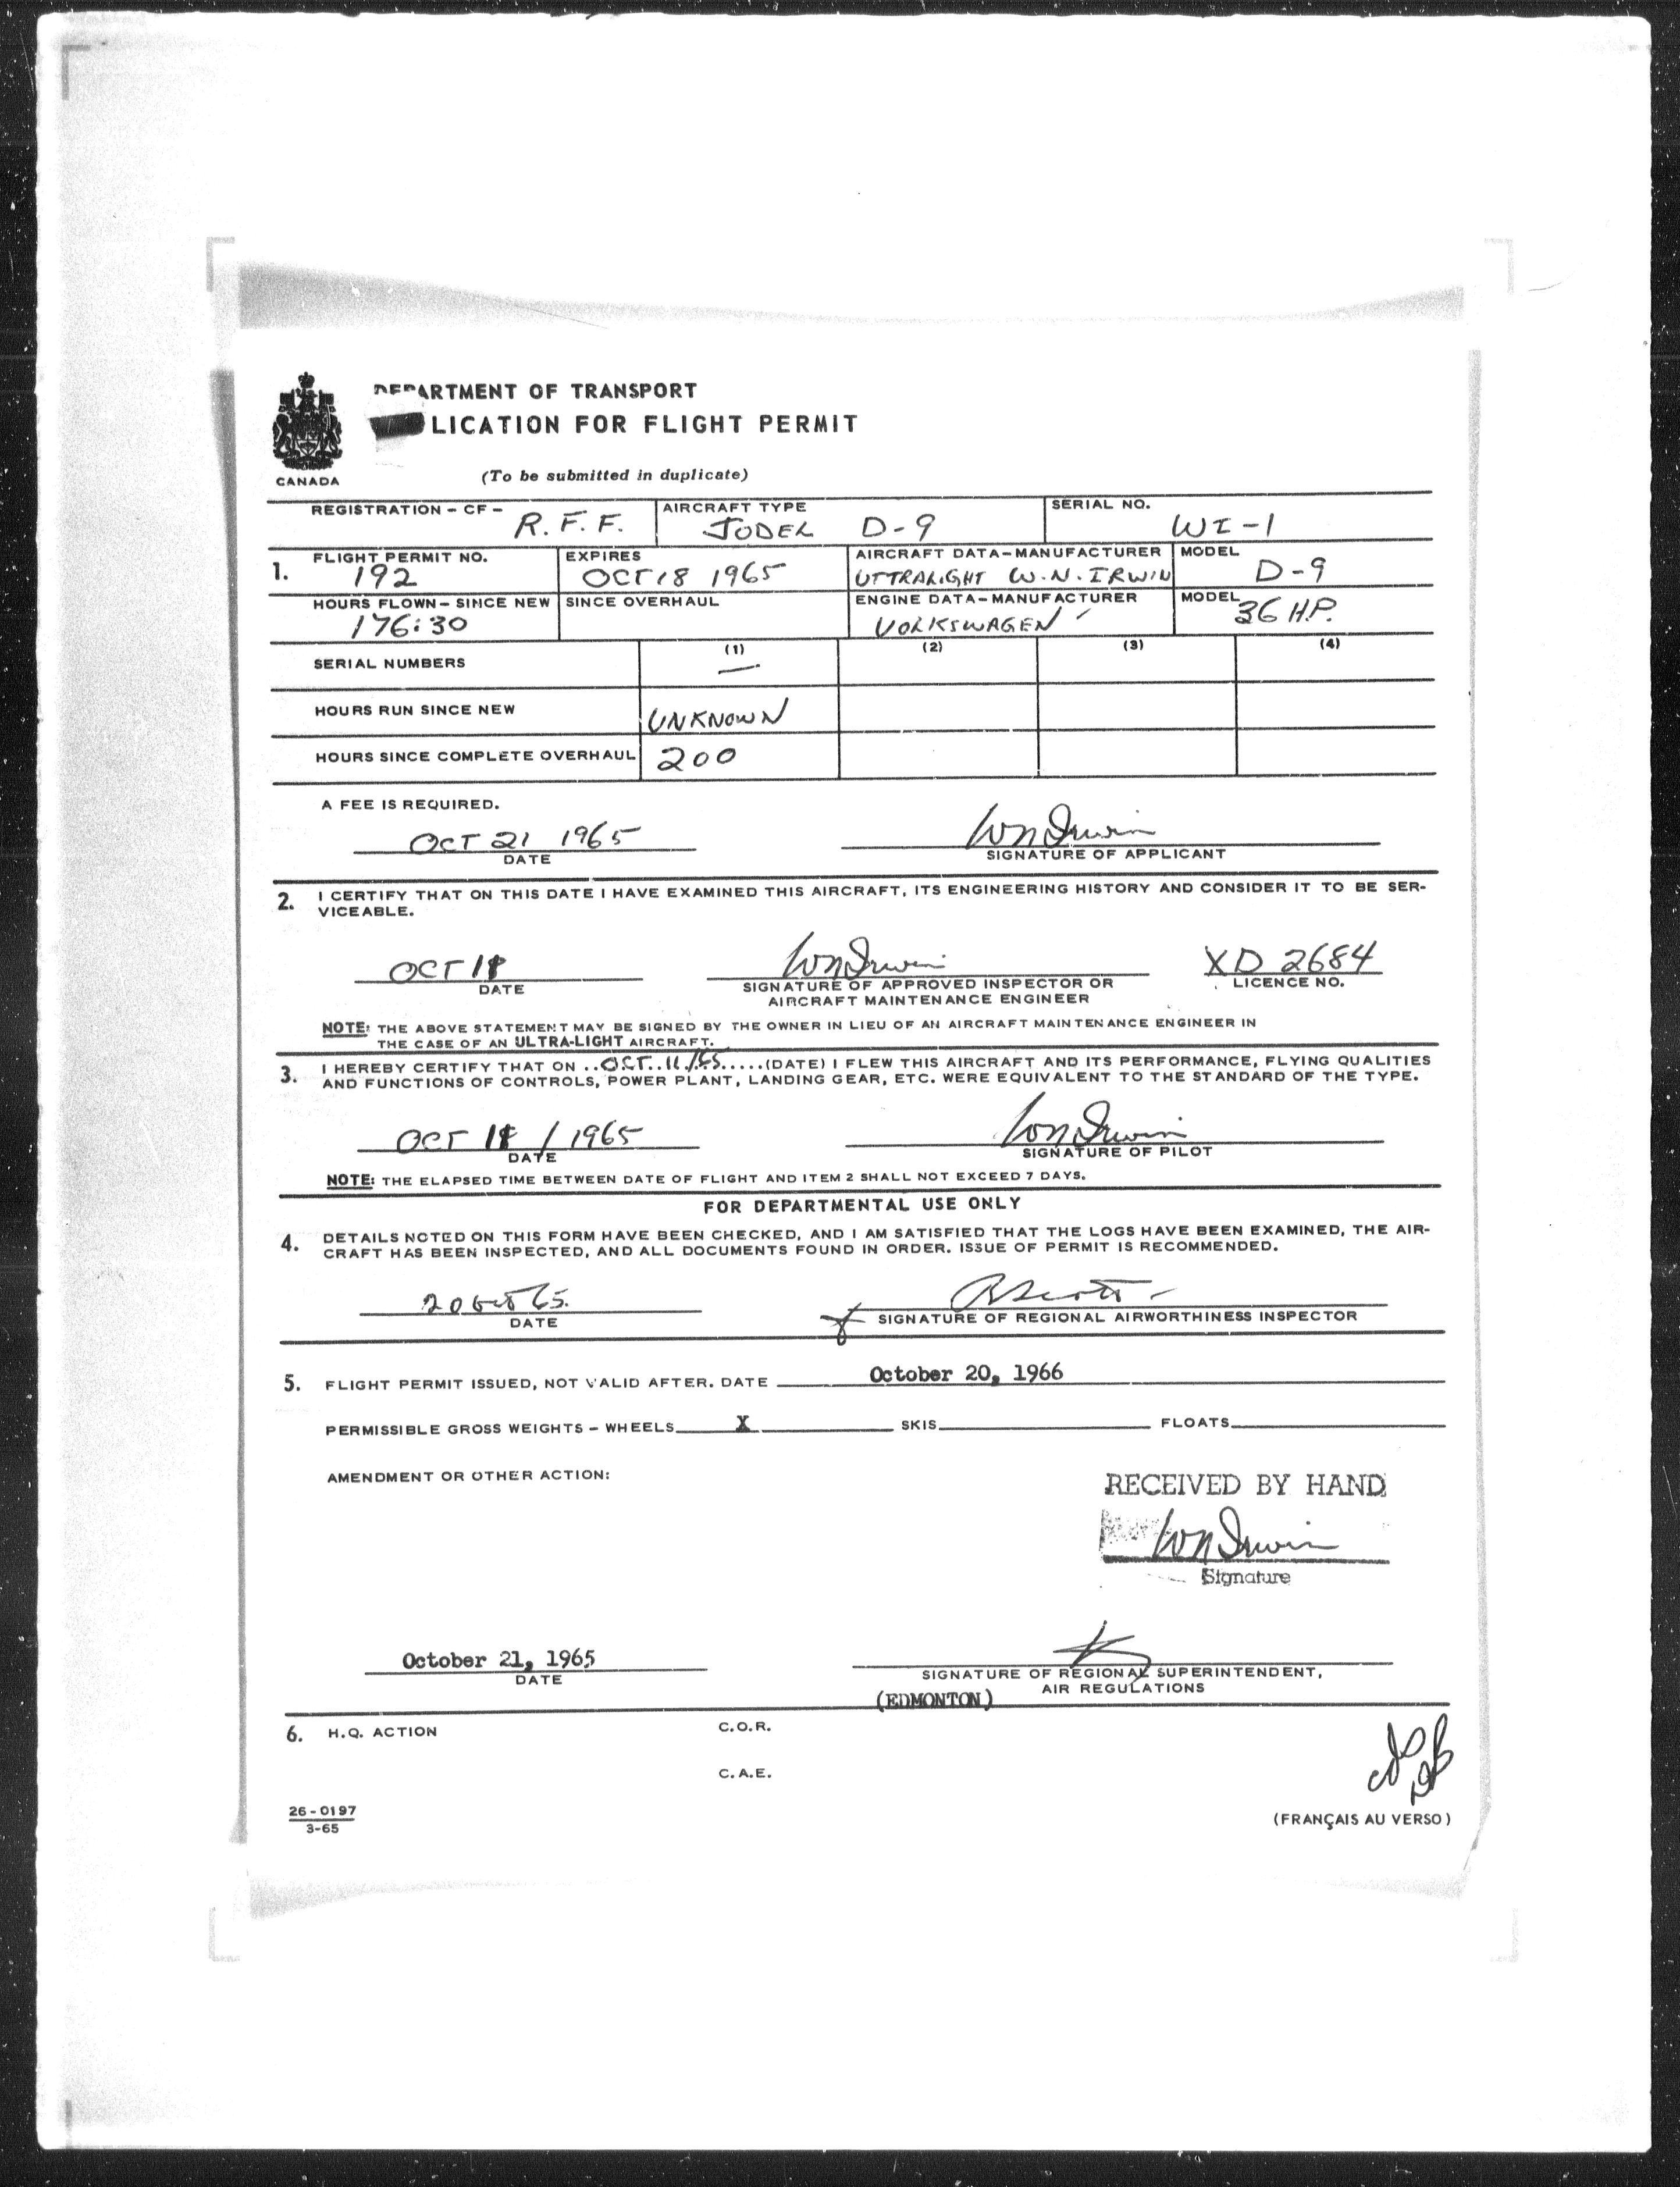 DEPARTMENT OF TRANSPORT
LICATION FOR FLIGHT PERMIT
CANADA
(To be submitted in duplicate)
REGISTRATION - CF - R. F. F. AIRCRAFT TYPE JODEL D-9 SERIAL NO. WI-1
1. FLIGHT PERMIT NO. 192 EXPIRES OCT 18 1965 AIRCRAFT DATA-MANUFACTURER UTTRALIGHT W.N. IRWIN MODEL D-9
HOURS FLOWN - SINCE NEW 176:30 SINCE OVERHAUL ENGINE DATA-MANUFACTURER VOLKSWAGEN MODEL 36 H.P.
SERIAL NUMBERS (1) — (2) (3) (4)
HOURS RUN SINCE NEW UNKNOWN
HOURS SINCE COMPLETE OVERHAUL 200
A FEE IS REQUIRED.
OCT 21 1965 WN Irwin
DATE SIGNATURE OF APPLICANT
2. I CERTIFY THAT ON THIS DATE I HAVE EXAMINED THIS AIRCRAFT, ITS ENGINEERING HISTORY AND CONSIDER IT TO BE SER-
VICEABLE.
OCT 18 WN Irwin XD 2684
DATE SIGNATURE OF APPROVED INSPECTOR OR LICENCE NO.
AIRCRAFT MAINTENANCE ENGINEER
NOTE: THE ABOVE STATEMENT MAY BE SIGNED BY THE OWNER IN LIEU OF AN AIRCRAFT MAINTENANCE ENGINEER IN
THE CASE OF AN ULTRA-LIGHT AIRCRAFT.
3. I HEREBY CERTIFY THAT ON ..OCT..11/65.....(DATE) I FLEW THIS AIRCRAFT AND ITS PERFORMANCE, FLYING QUALITIES
AND FUNCTIONS OF CONTROLS, POWER PLANT, LANDING GEAR, ETC. WERE EQUIVALENT TO THE STANDARD OF THE TYPE.
OCT 18 / 1965 WN Irwin
DATE SIGNATURE OF PILOT
NOTE: THE ELAPSED TIME BETWEEN DATE OF FLIGHT AND ITEM 2 SHALL NOT EXCEED 7 DAYS.
FOR DEPARTMENTAL USE ONLY
4. DETAILS NOTED ON THIS FORM HAVE BEEN CHECKED, AND I AM SATISFIED THAT THE LOGS HAVE BEEN EXAMINED, THE AIR-
CRAFT HAS BEEN INSPECTED, AND ALL DOCUMENTS FOUND IN ORDER. ISSUE OF PERMIT IS RECOMMENDED.
20 Oct 65.
DATE SIGNATURE OF REGIONAL AIRWORTHINESS INSPECTOR
5. FLIGHT PERMIT ISSUED, NOT VALID AFTER. DATE October 20, 1966
PERMISSIBLE GROSS WEIGHTS - WHEELS X SKIS FLOATS
AMENDMENT OR OTHER ACTION:
RECEIVED BY HAND
WN Irwin
Signature
October 21, 1965
DATE SIGNATURE OF REGIONAL SUPERINTENDENT,
(EDMONTON) AIR REGULATIONS
6. H.Q. ACTION C.O.R.
C.A.E.
26-0197
3-65
(FRANÇAIS AU VERSO)